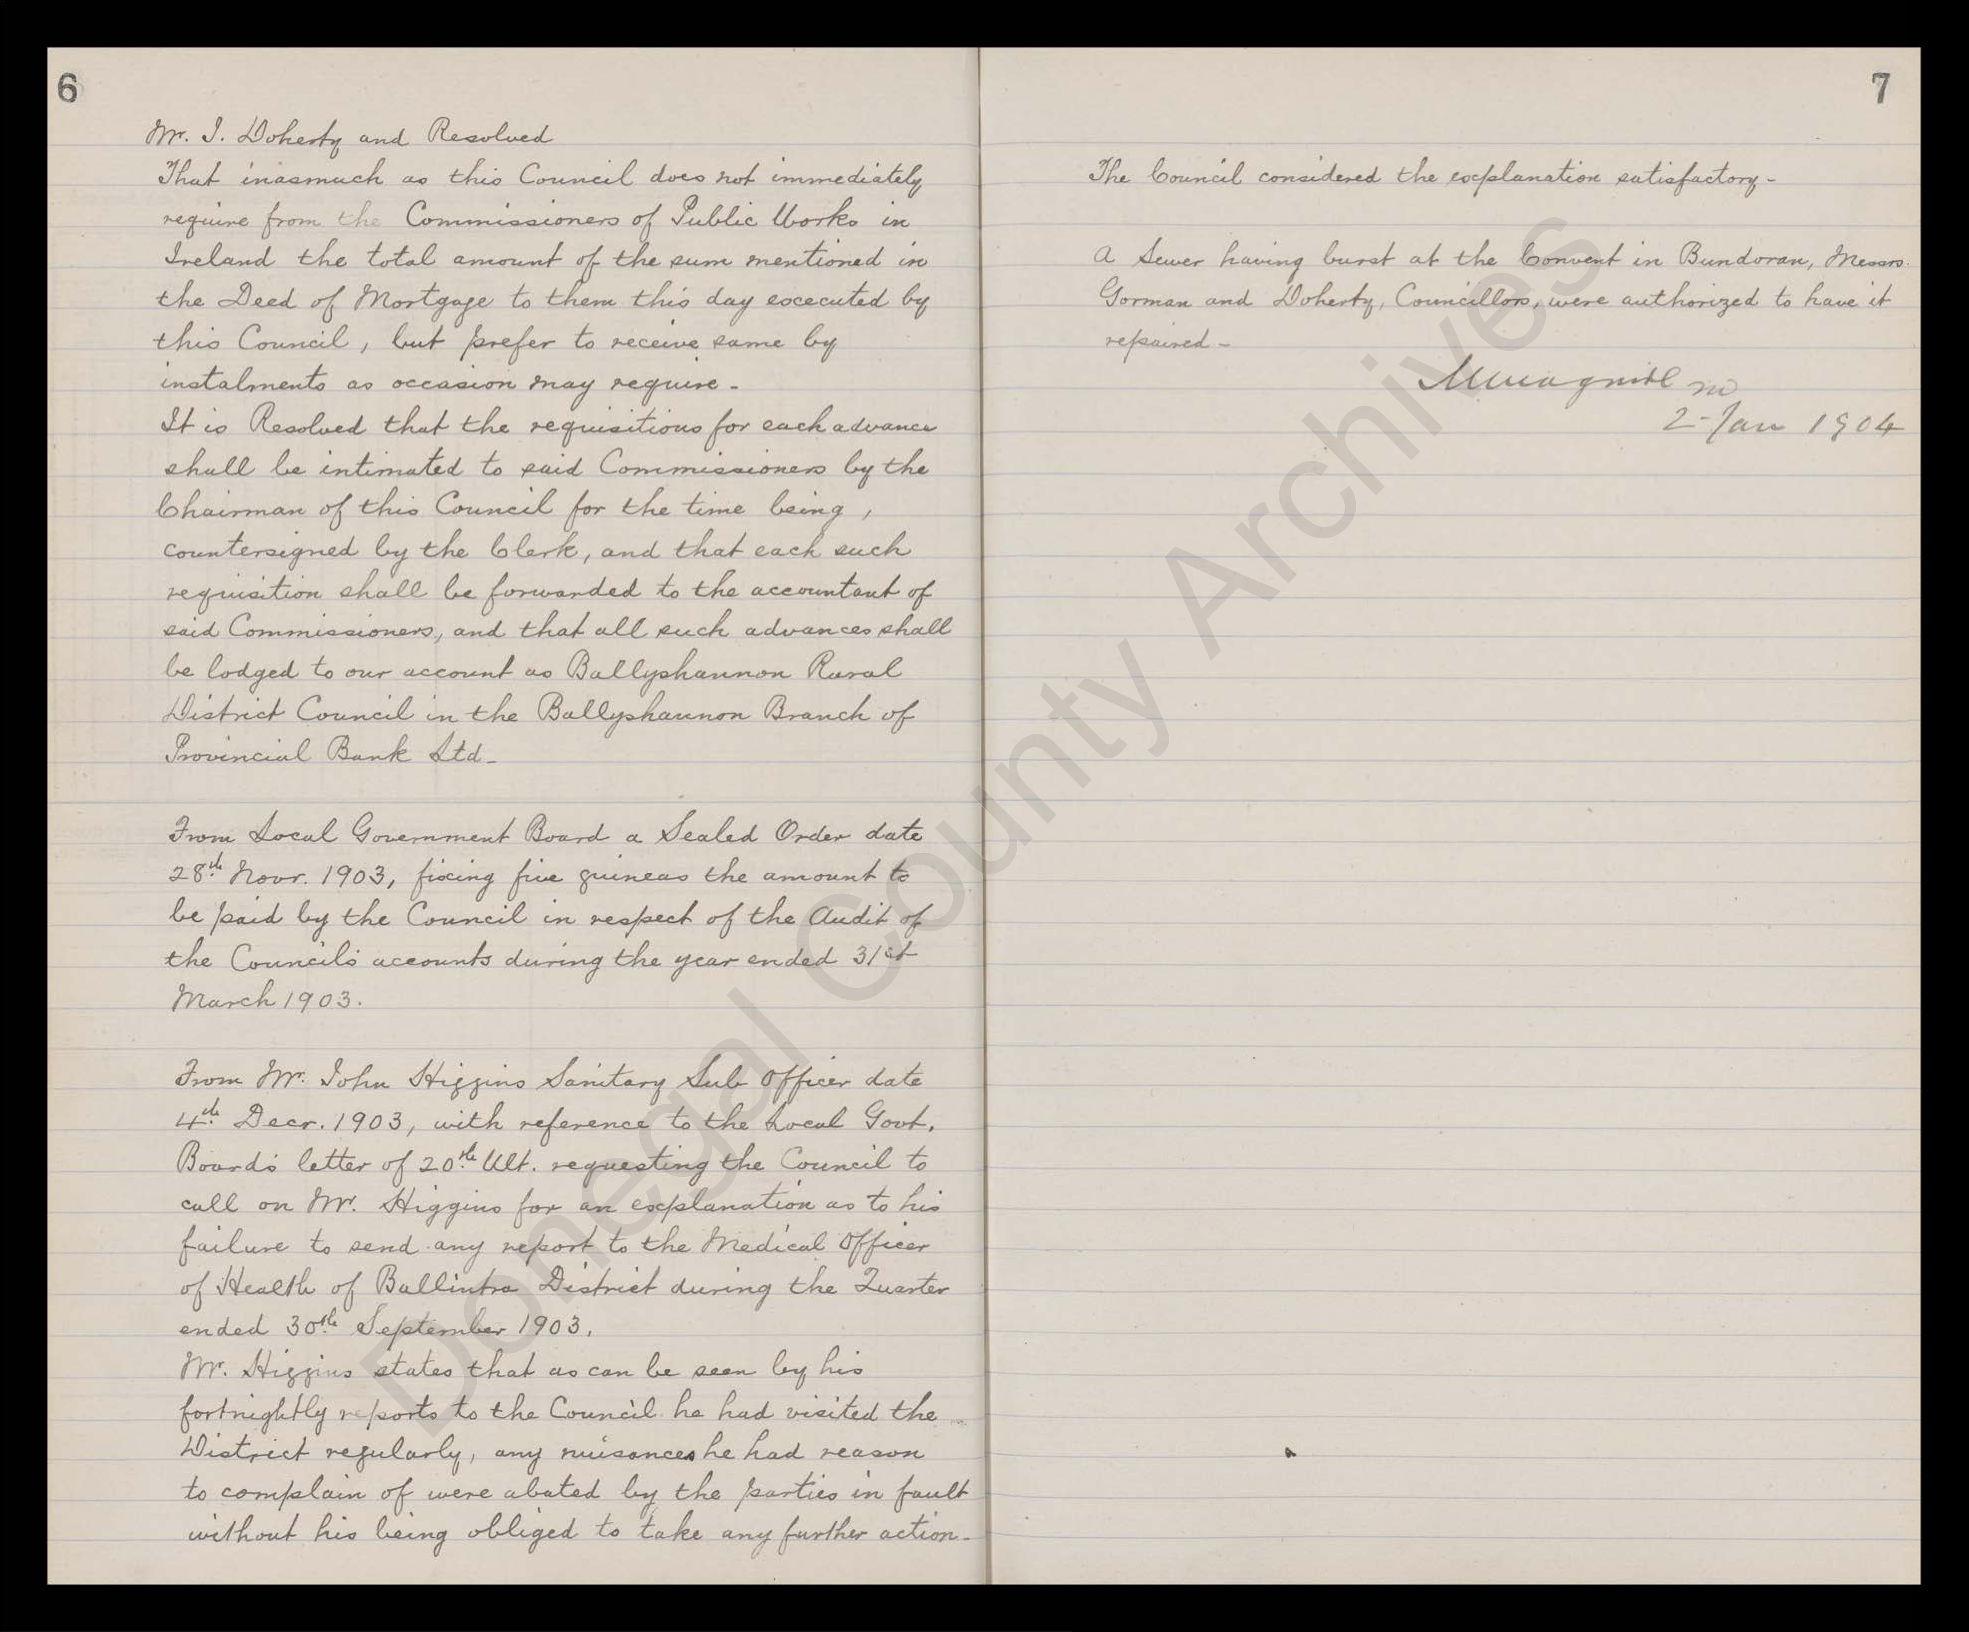 6
Mr. I. Doherty and Resolved
That inasmuch as this Council does not immediately
require from the Commissioners of Public Works in
Ireland the total amount of the sum mentioned in
the Deed of Mortgage to them this day executed by
this Council, but prefer to receive same by
instalments as occasion may require -
It is Resolved that the requisitions for each advance
shall be intimated to said Commissioners by the
Chairman of this Council for the time being,
countersigned by the Clerk, and that each such
requisition shall be forwarded to the accountant of
said Commissioners, and that all such advances shall
be lodged to our account as Ballyshannon Rural
District Council in the Ballyshannon Branch of
Provincial Bank Ltd -
From Local Government Board a Sealed Order date
28th Novr. 1903, fixing five guineas the amount to
be paid by the Council in respect of the Audit of
the Council's accounts during the year ended 31st
March 1903.
From Mr. John Higgins Sanitary Sub Officer date
4th Decr. 1903, with reference to the Local Govt.
Board's letter of 20th Ult. requesting the Council to
call on Mr. Higgins for an explanation as to his
failure to send any report to the Medical Officer
of Health of Ballintra District during the Quarter
ended 30th September 1903.
Mr. Higgins states that as can be seen by his
fortnightly reports to the Council he had visited the
District regularly, any nuisances he had reason
to complain of were abated by the parties in fault
without his being obliged to take any further action -
7
The Council considered the explanation satisfactory -
A Sewer having burst at the Convent in Bundoran, Messrs.
Gorman and Doherty, Councillors, were authorized to have it
repaired -
2 - Jan 1904
Donegal County Archives